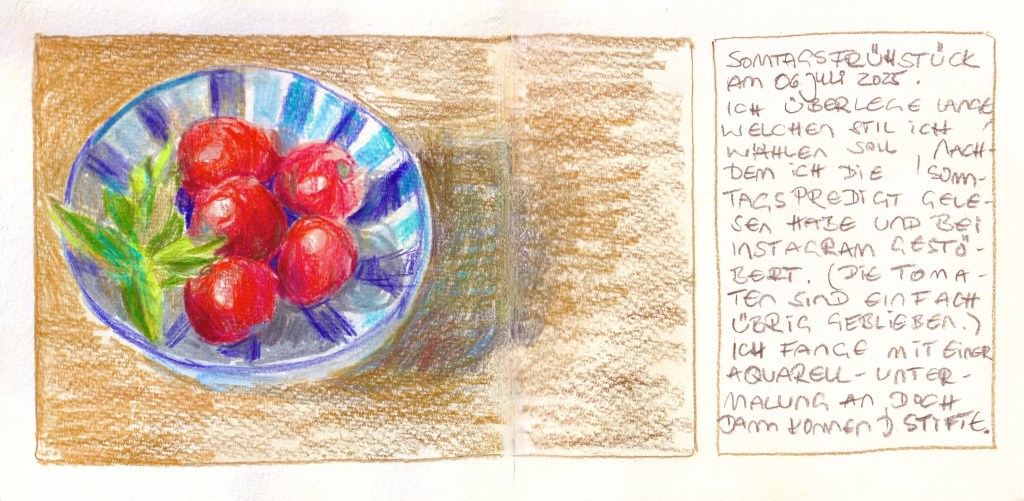 SONNTAGSFRÜHSTÜCK
AM 06 JULI 2025.
ICH ÜBERLEGE LANGE
WELCHEN STIL ICH
WÄHLEN SOLL, NACH-
DEM ICH DIE SONN-
TAGSPREDIGT GELE-
SEN HABE UND BEI
INSTAGRAM GESTÖ-
BERT. (DIE TOMA-
TEN SIND EINFACH
ÜBRIG GEBLIEBEN.)
ICH FANGE MIT EINER
AQUARELL-UNTER-
MALUNG AN, DOCH
DANN KOMMEN STIFTE.